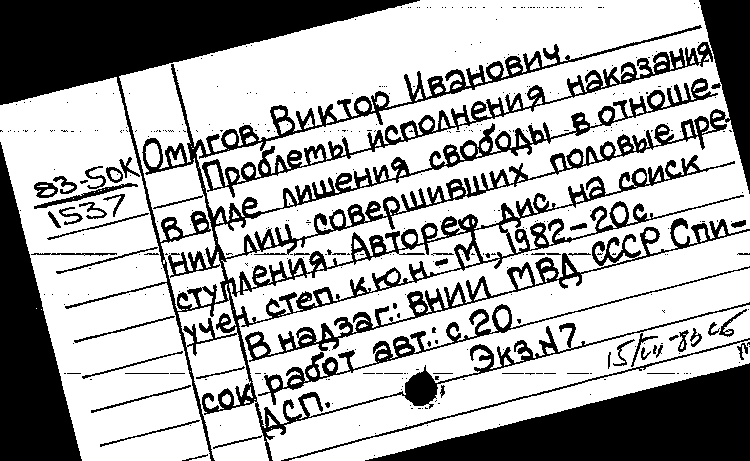 83-50К
1537
Омигов, Виктор Иванович.
Проблемы исполнения наказания
в виде лишения свободы в отноше-
нии лиц, совершивших половые пре-
ступления: Автореф. дис. на соиск
учен. степ. к.ю.н. - М., 1982. - 20с.
В надзаг.: ВНИИ МВД СССР. Спи-
сок работ авт.: с. 20.
ДСП. Экз. №7.
15/VII-83